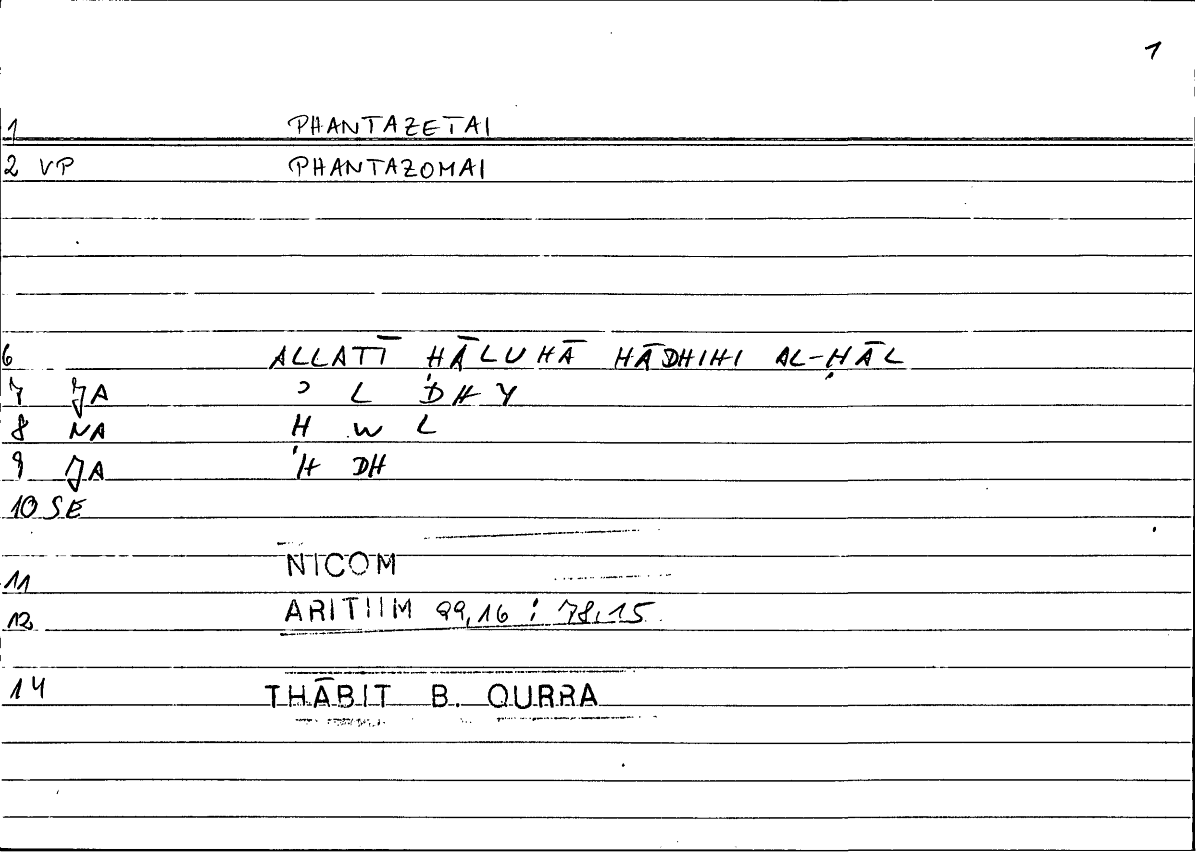 1
1 PHANTAZETAI
2 VP PHANTAZOMAI
6 ALLATĪ ḤĀLUHĀ HĀDHIHI AL-ḤĀL
7 JA Ɔ L DH Y
8 NA H W L
9 JA 'H DH
10 SE
11 NICOM
12 ARITIIM 99,16 : 78,15
14 THĀBIT B. QURRA